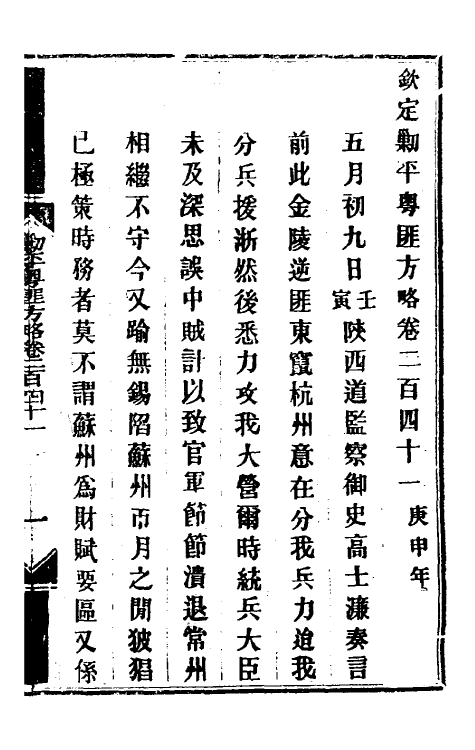 欽定勦平粵匪方略卷二百四十一 庚申年
五月初九日壬寅陝西道監察御史高士濂奏言
前此金陵逆匪東竄杭州意在分我兵力迨我
分兵援浙然後悉力攻我大營爾時統兵大臣
未及深思誤中賊計以致官軍節節潰退常州
相繼不守今又踰無錫陷蘇州帀月之閒狓猖
已極策時務者莫不謂蘇州為財賦要區又係
勦平粵匪方略卷二百四十一
一